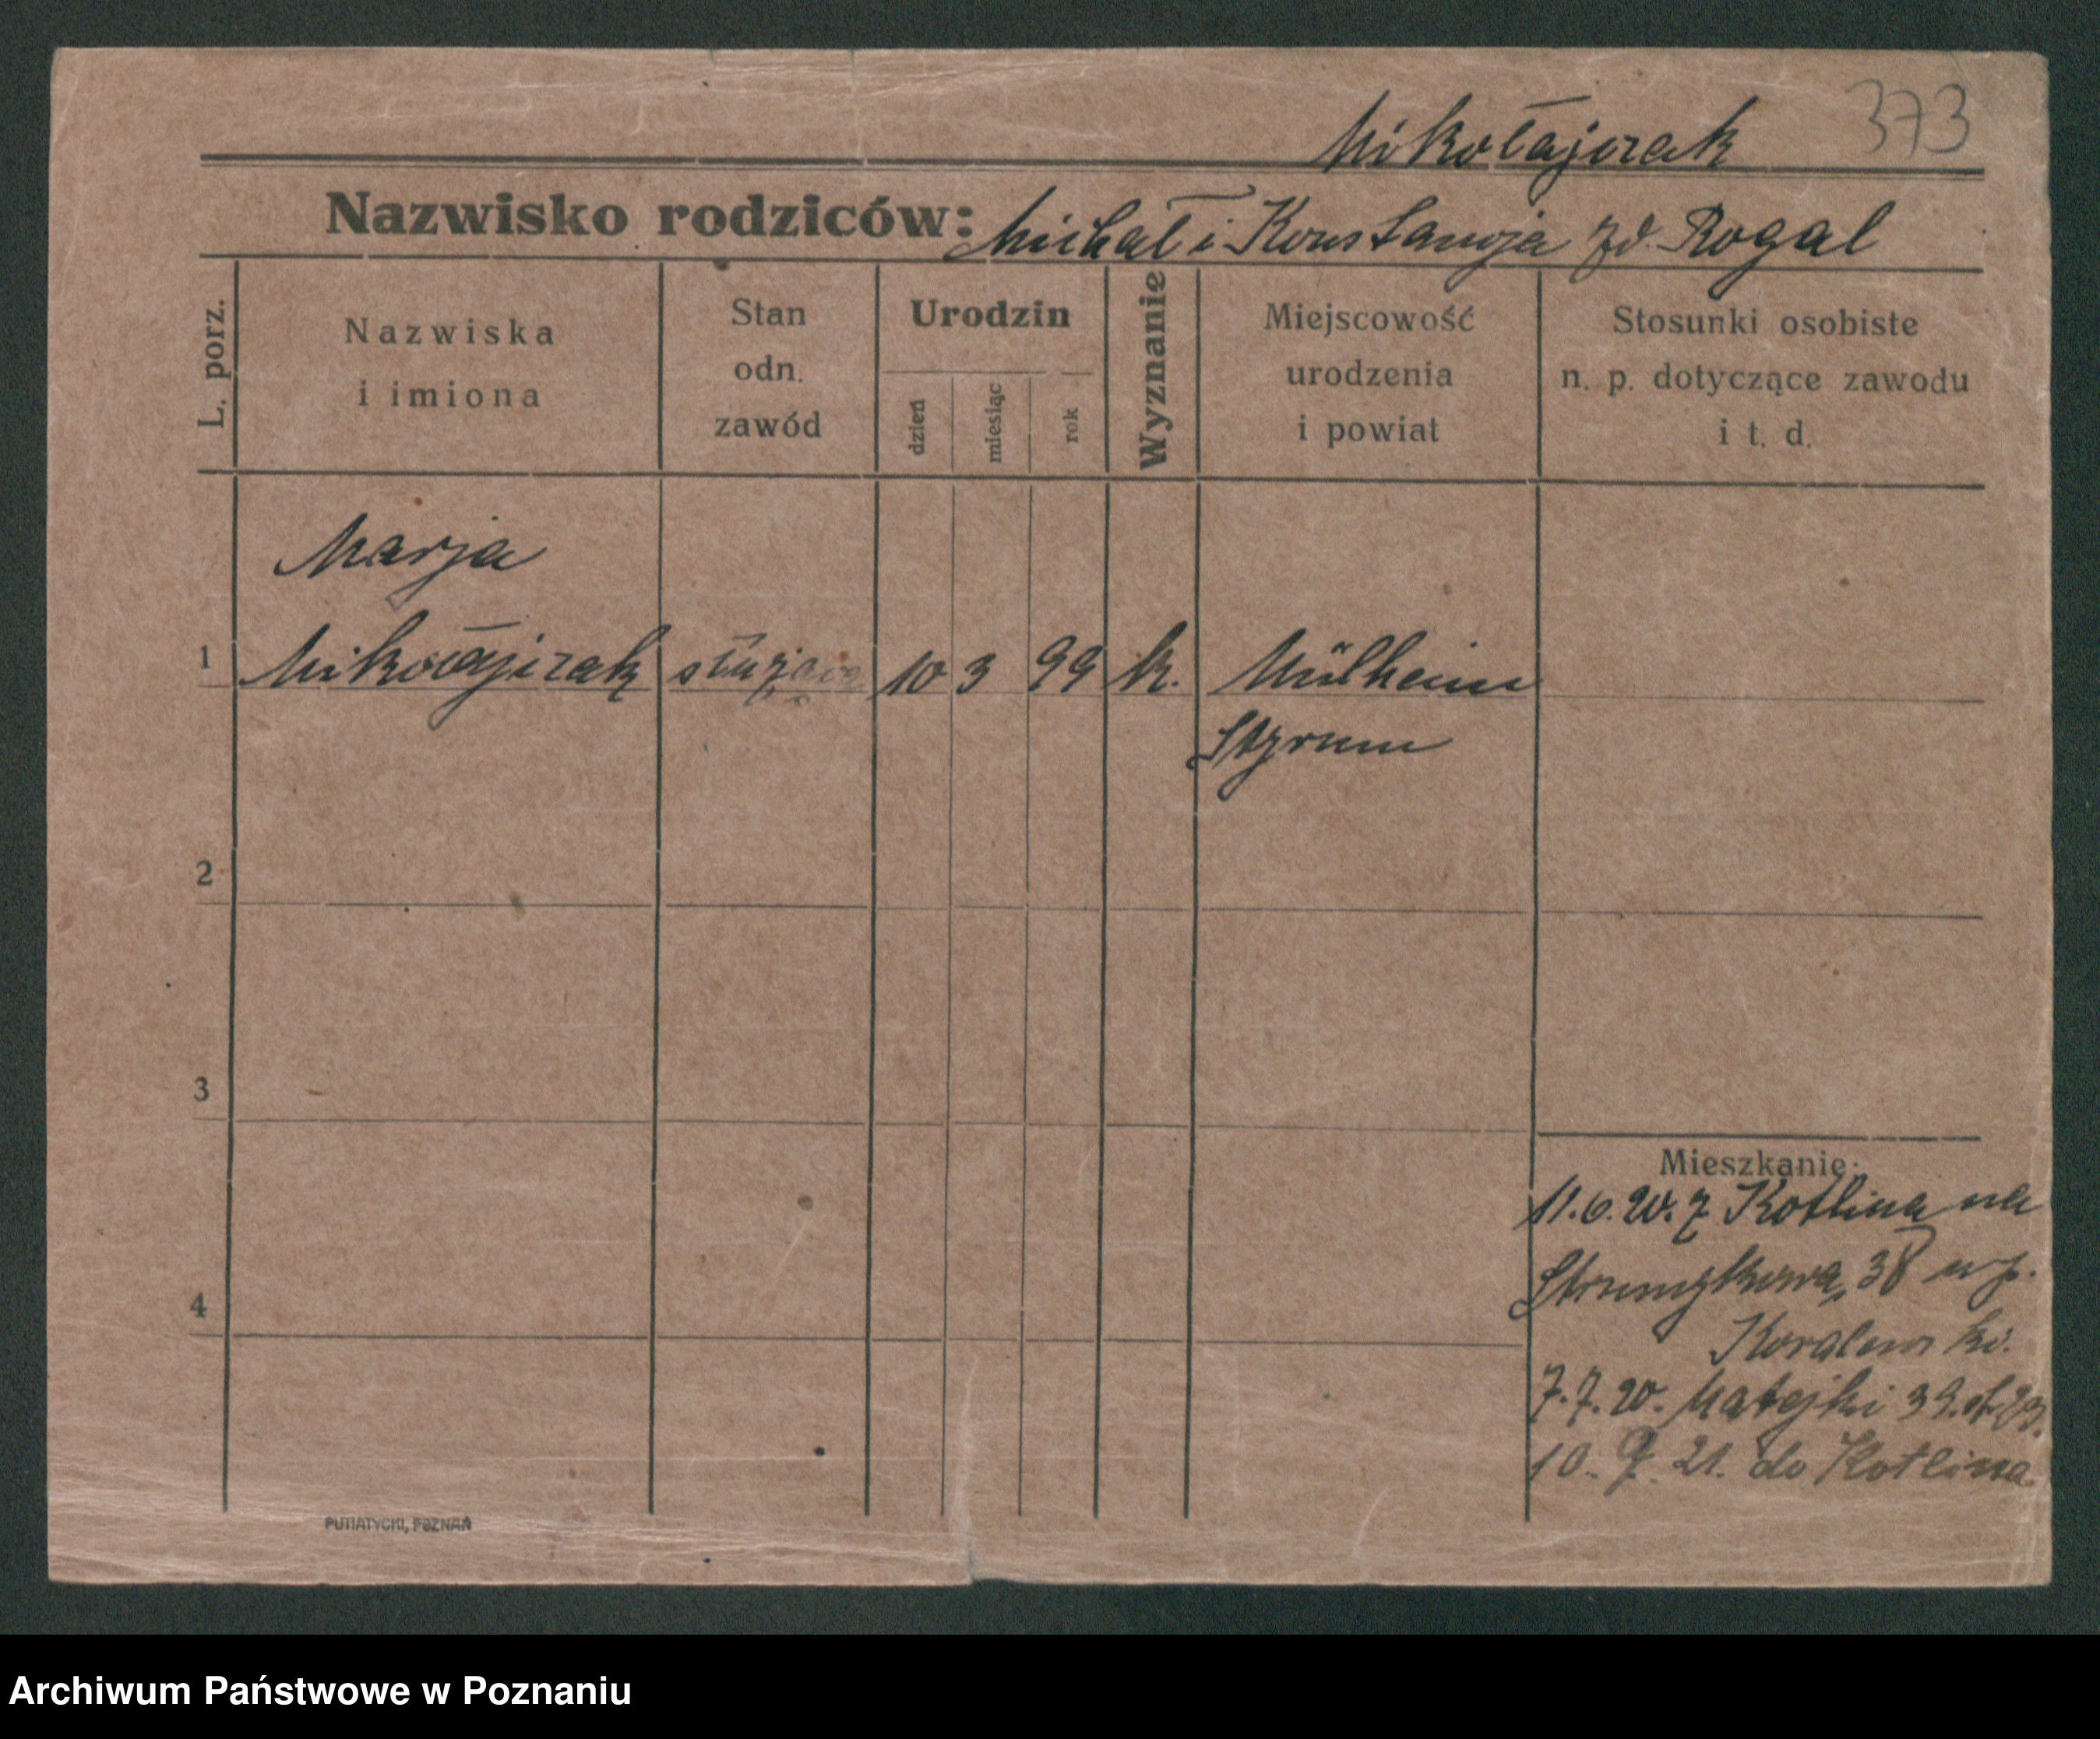 373
Mikołajczak
Nazwisko rodziców: Michał i Konstancja zd. Rogal
L. porz.
Nazwiska
i imiona
Stan
odn.
zawód
Urodzin
dzień
miesiąc
rok
Wyznanie
Miejscowość
urodzenia
i powiat
Stosunki osobiste
n. p. dotyczące zawodu
i t. d.
Marja
1 Mikołajczak służąca 10 3 99 k. Mülheim
Styrum
2
3
4
Mieszkanie:
11.6.20. z Kotlina na
Strumykowa 38 u p.
Koralewski.
7.7.20. Matejki 39. 
10. 9. 21. do Kotlina.
PUTIATYCKI, POZNAŃ
Archiwum Państwowe w Poznaniu